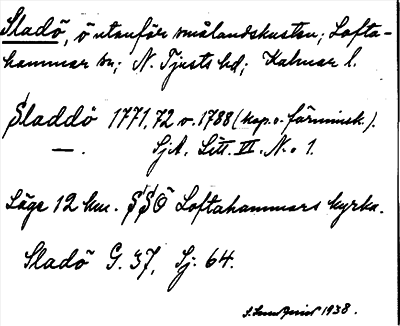 Sladö, ö utanför smålandskusten; Lofta-
hammar sn; N. Tjusts hd; Kalmar l.
Sladdö 1771, 72 o. 1788 (kop. o. förminsk.).
—. SjA, Litt. VI. N:o 1.
Läge 12 km. SSÖ Loftahammars kyrka.
Sladö G. 37, Sj. 64.
1938.